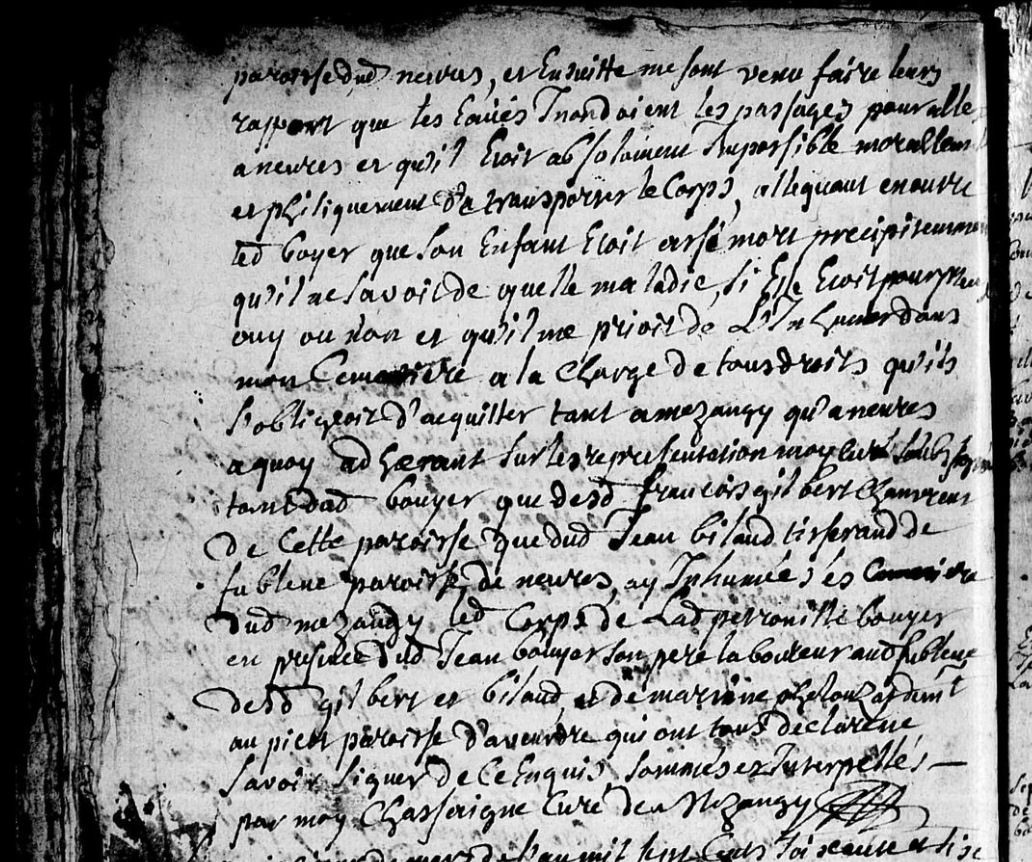 paroisse dud neuvres, et Ensuitte me sont venu faire leurs
rapport que les Eaües Inondoient les passages pour alle
a neuvres et qu'il Etoit absolument Impossible morallem
et phisiquement de transporter le Corps, allequant enoutre
led boyer que son Enfant Etoit assé mort precipitemment
qu'il ne savoit de quelle maladie, si Elle Etoit
ouy ou non et qu'il me prioit de L'Inhumer dans
mon Cemetiére a la Charge de tous droits qu'ils
s'obligeoit d'acquitter tant a mezangy qu'a neuvres
a quoy adhœrant sur les representation moy Curé soubsigné
tant dud bouyer que desd francois gilbert
de Cette paroisse que dud Jean biland tisserand de
fublene paroisse de neuvres, ay Inhumée és Cemetiére
dud mezangy led Corps de Lad perronille bouyer
en presence dud Jean bouyer son pere laboureur aud fublene
desd gilbert et biland, et de
au pieu paroisse d'aveurdre qui ont tous declarene
savoir signer de Ce Enquis sommes et Interpellés —
par moy Chassaigne Curé de Mezangy
de l'an mil sept Cents soixante et